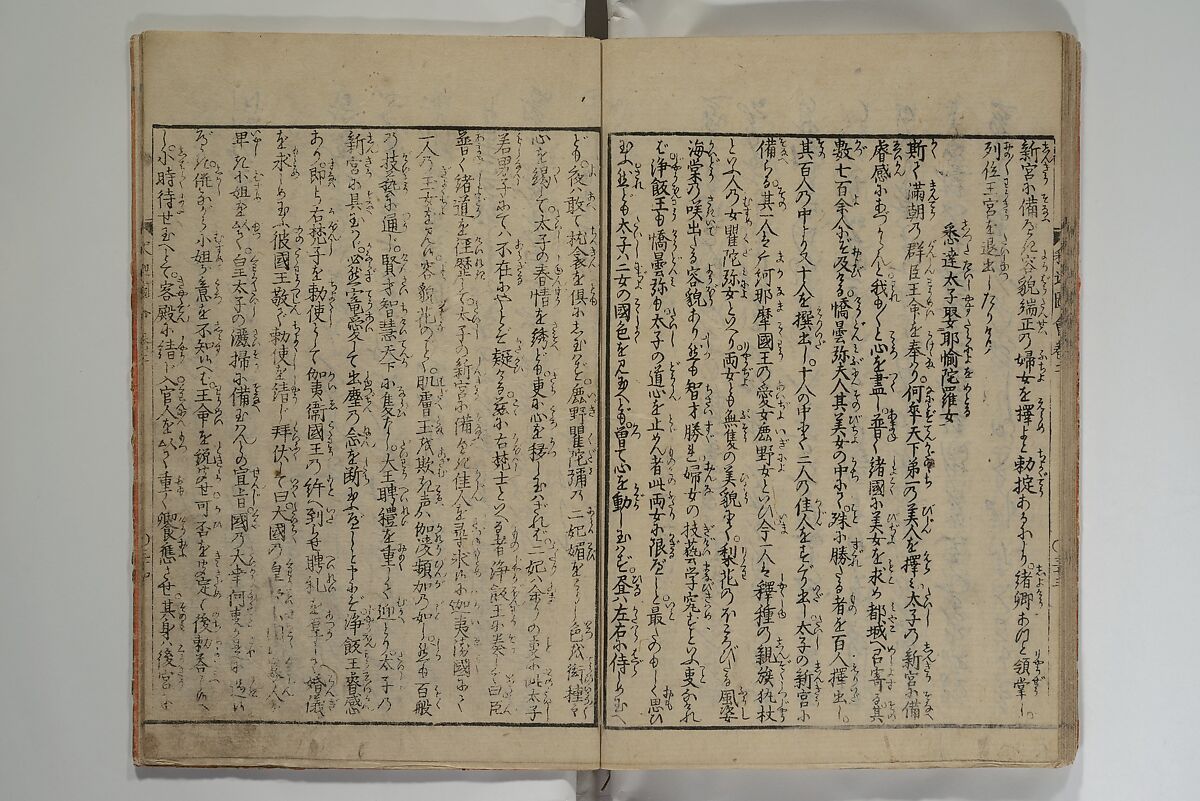 新宮に備ふべき容貌端正の婦女を擇よと勅掟ありしかバ。諸卿おの〳〵と領掌し。
列位王宮を退出したりけり
悉達太子娶耶愉陀羅女
斯て満朝の群臣王命を奉り。何卒天下第一の美人を擇ミ太子の新宮に備へ
睿感にあづからんと我も〳〵と心を盡し。普く諸國に美女を求め都城へ召寄る其
數七百余人に及べり。憍曇弥夫人其美女の中より殊に勝たる者を百人擇出し。
其百人の中より又十人を撰出し。十人の中にて二人の佳人をすぐり出し太子の新宮に
備らる。其一人ハ 訶那摩國王の愛女鹿野女といひ今一人ハ釋種の親族執杖
といふ人の女瞿陀弥女といへり。両女とも無雙の美貌にて。梨花の 風姿
海棠の咲出る容貌ありて智才勝れ婦女の技藝学究ずといふ事なけれ
ば。浄飯王も憍曇弥も太子の道心を止めん者此両女に限べしと最たのもしく思ひ
玉ふ。然ども太子ハ二女の國色を見玉へども曽て心を動し玉ハず。昼ハ左右に侍らしめ玉へ
ども。夜ハ敢て枕衾を俱にし玉ハず。鹿野瞿陀彌の二妃媚をつくし色代
心を竭して太子の春情を誘ども更に心を移し玉ハざれバ。二妃ハ余りの事に此太子
若男子にてハ不在にやと 疑ける。茲に右梵士といふ者浄飯王に奏して曰臣
普く諸道を徑歴して太子の新宮に備ふべき佳人を尋求候に伽夷衛國に
一人の王女ます。容貌花のごとく肌膚玉を欺き声ハ伽陵頻伽の如し。然も百般
の技藝に通じ。賢才智慧天下に雙なし。大王聘禮を重くし迎とり太子の
新宮に具玉ハヾ。必然寵愛して出塵の念を断玉ふべしと申にぞ。浄飯王睿感
あり。即ち右梵子を勅使として伽夷衛國王の許へ到らせ聘礼を厚して婚儀
を求しめ玉ふ。彼國王敬て勅使を請じ拜伏して曰大國の皇
卑き小姐を以て皇太子の灑掃に備玉ハんとの宣旨國の大幸何事か是に
べき。併ながら小姐が意を不知バ王命を説きかせ可否を定て後勅答
し。小時待せ玉へとて。客殿に請じ入官人を以て重く饗應させ其身ハ後宮に